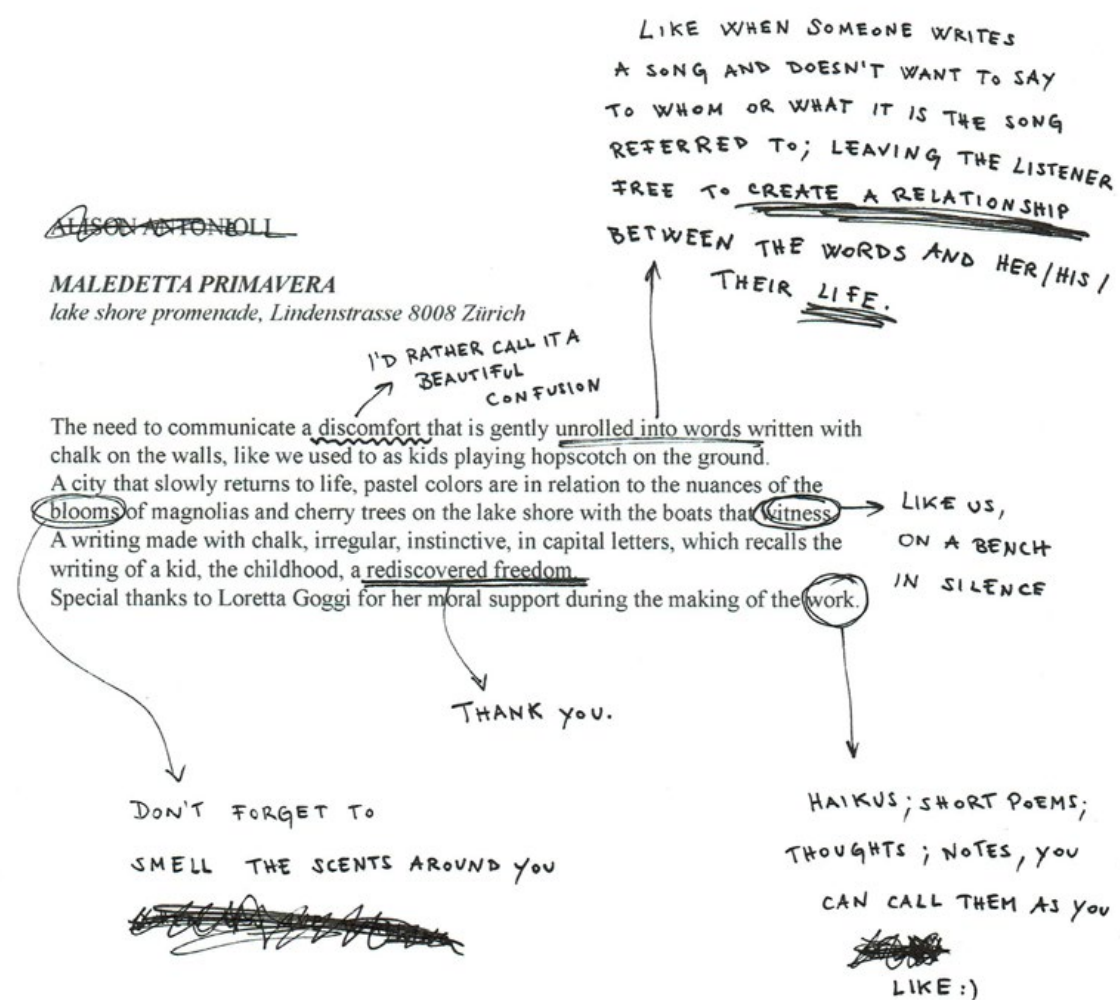 LIKE WHEN SOMEONE WRITES
A SONG AND DOESN'T WANT TO SAY
TO WHOM OR WHAT IT IS THE SONG
REFERRED TO; LEAVING THE LISTENER
FREE TO CREATE A RELATIONSHIP
BETWEEN THE WORDS AND HER/HIS/
THEIR LIFE.
ALISON ANTONIOLL
MALEDETTA PRIMAVERA
lake shore promenade, Lindenstrasse 8008 Zürich
I'D RATHER CALL IT A
BEAUTIFUL
CONFUSION
The need to communicate a discomfort that is gently unrolled into words written with
chalk on the walls, like we used to as kids playing hopscotch on the ground.
A city that slowly returns to life, pastel colors are in relation to the nuances of the
blooms of magnolias and cherry trees on the lake shore with the boats that witness.
A writing made with chalk, irregular, instinctive, in capital letters, which recalls the
writing of a kid, the childhood, a rediscovered freedom.
Special thanks to Loretta Goggi for her moral support during the making of the work.
LIKE US,
ON A BENCH
IN SILENCE
THANK YOU.
DON'T FORGET TO
SMELL THE SCENTS AROUND YOU
HAIKUS; SHORT POEMS;
THOUGHTS; NOTES, YOU
CAN CALL THEM AS YOU
LIKE :)